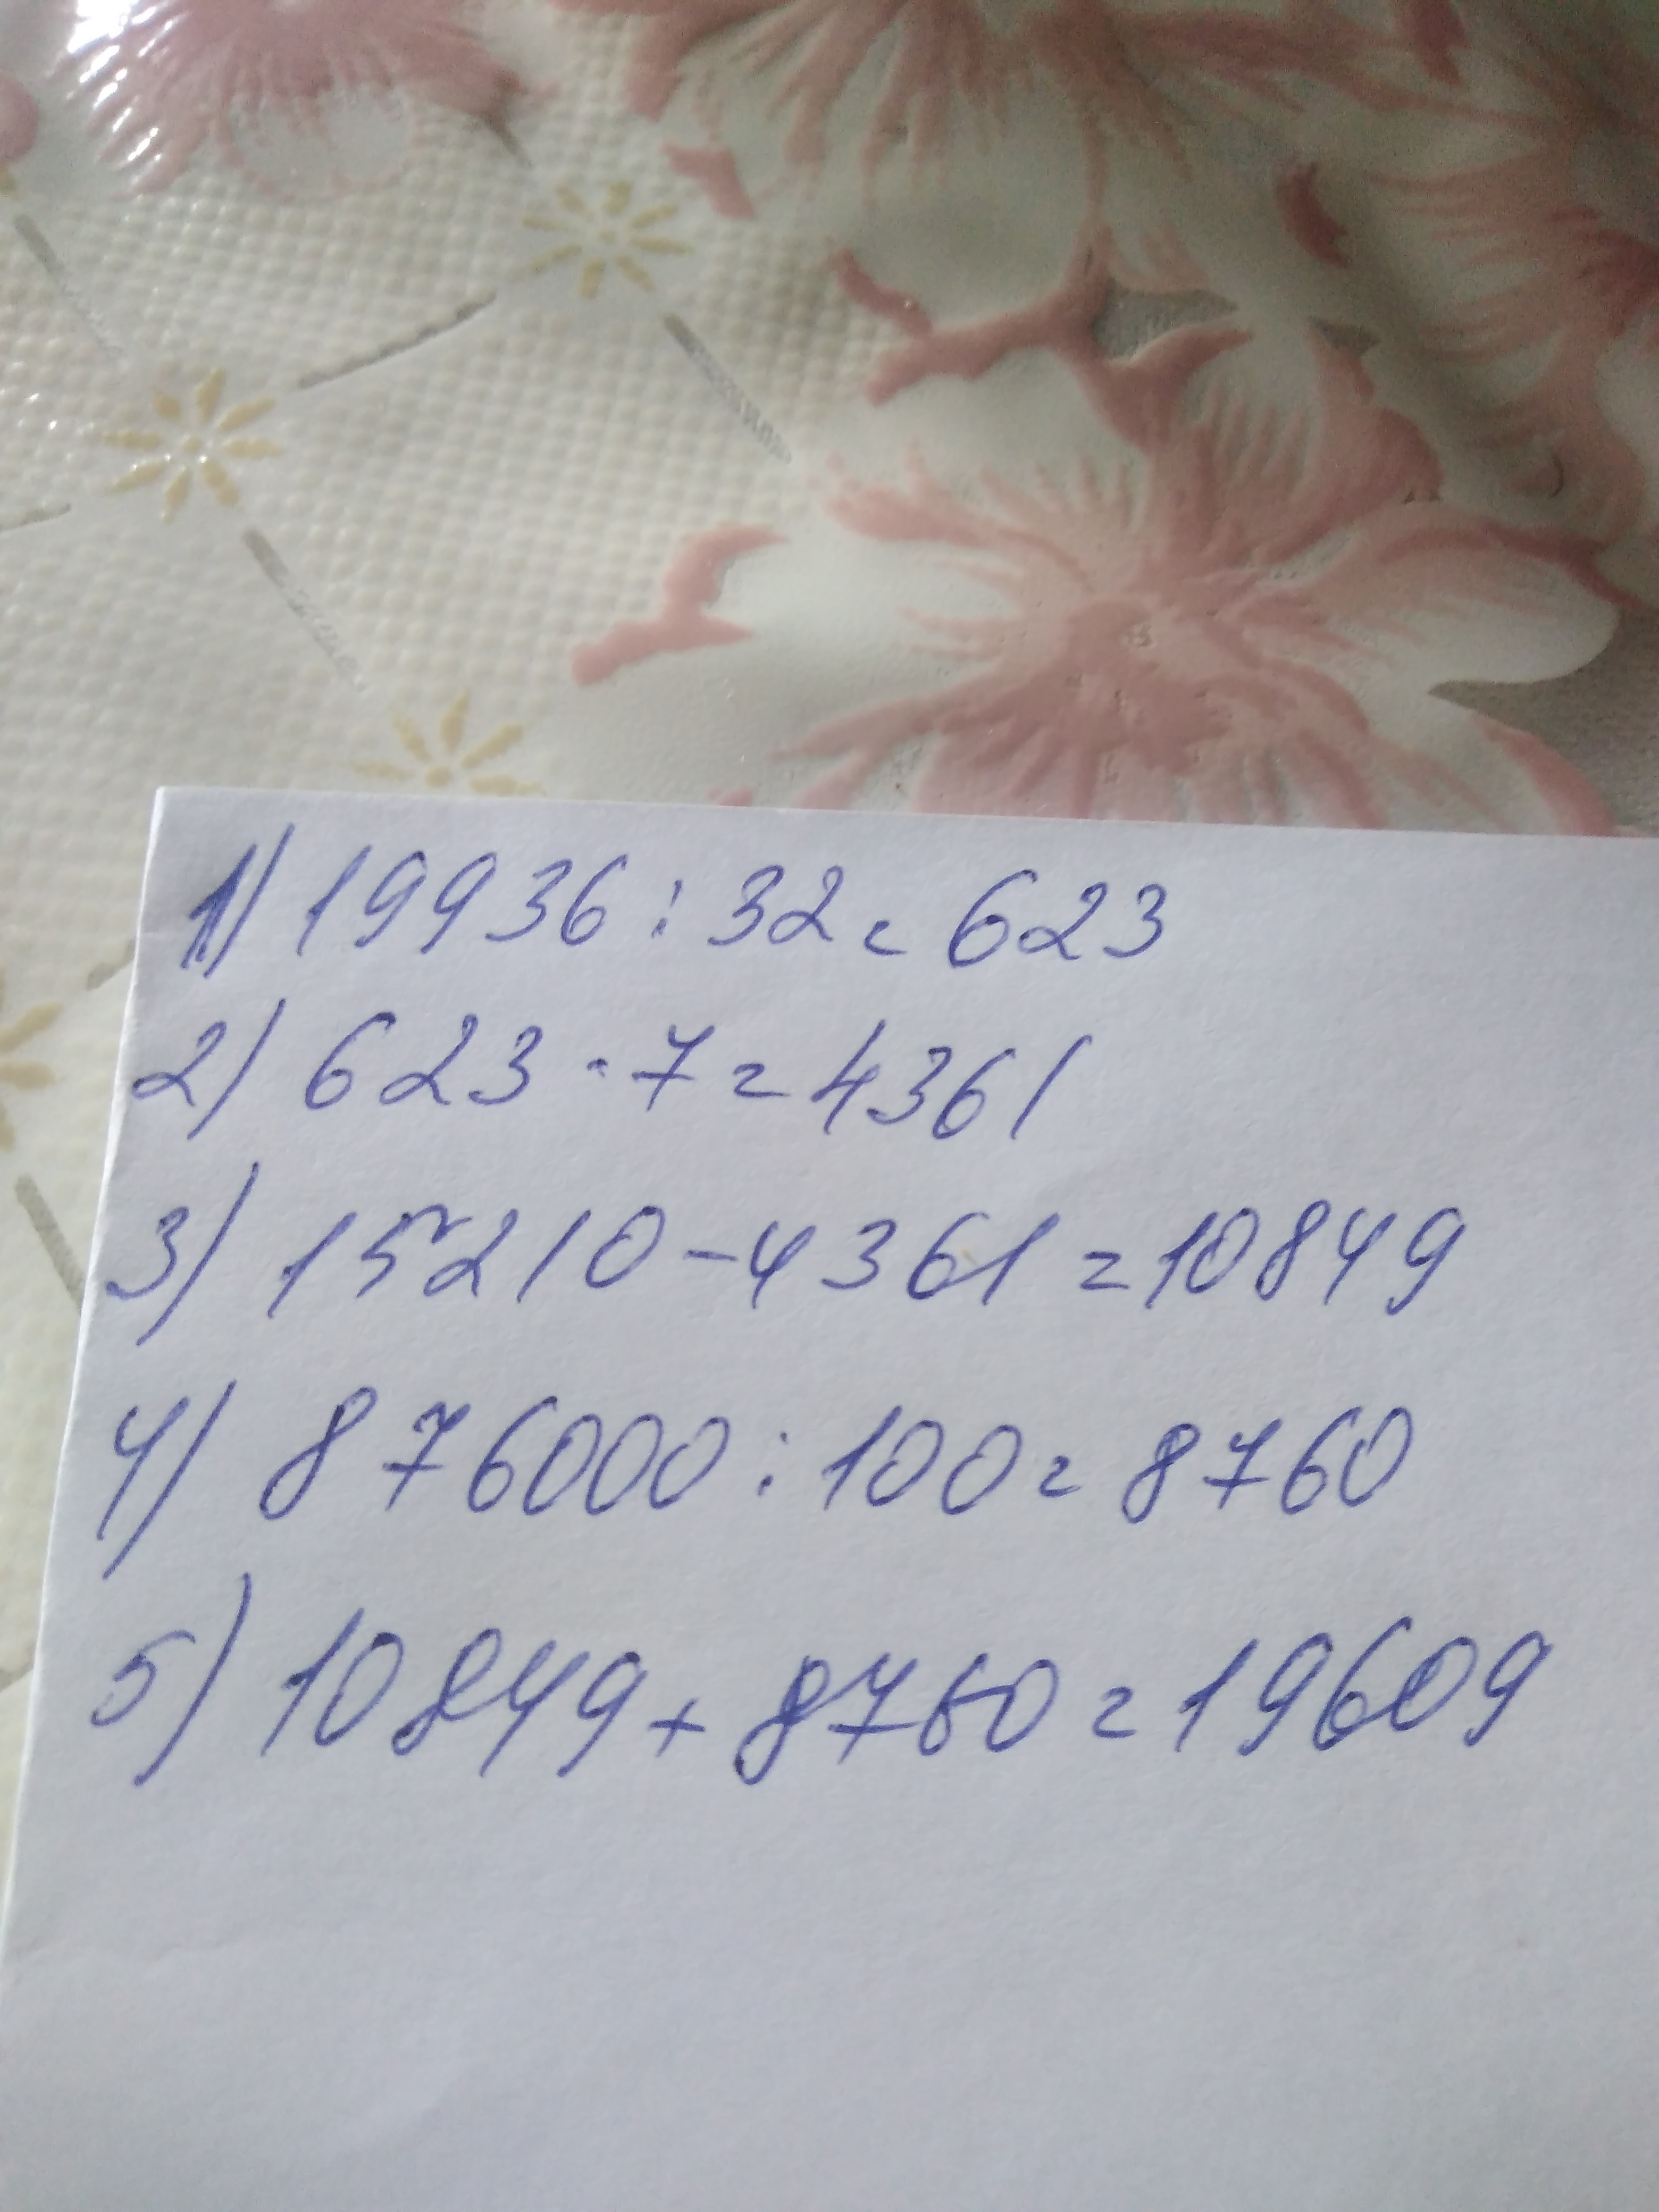 1) 19936 : 32 = 623
2) 623 · 7 = 4361
3) 15210 - 4361 = 10849
4) 876000 : 100 = 8760
5) 10849 + 8760 = 19609